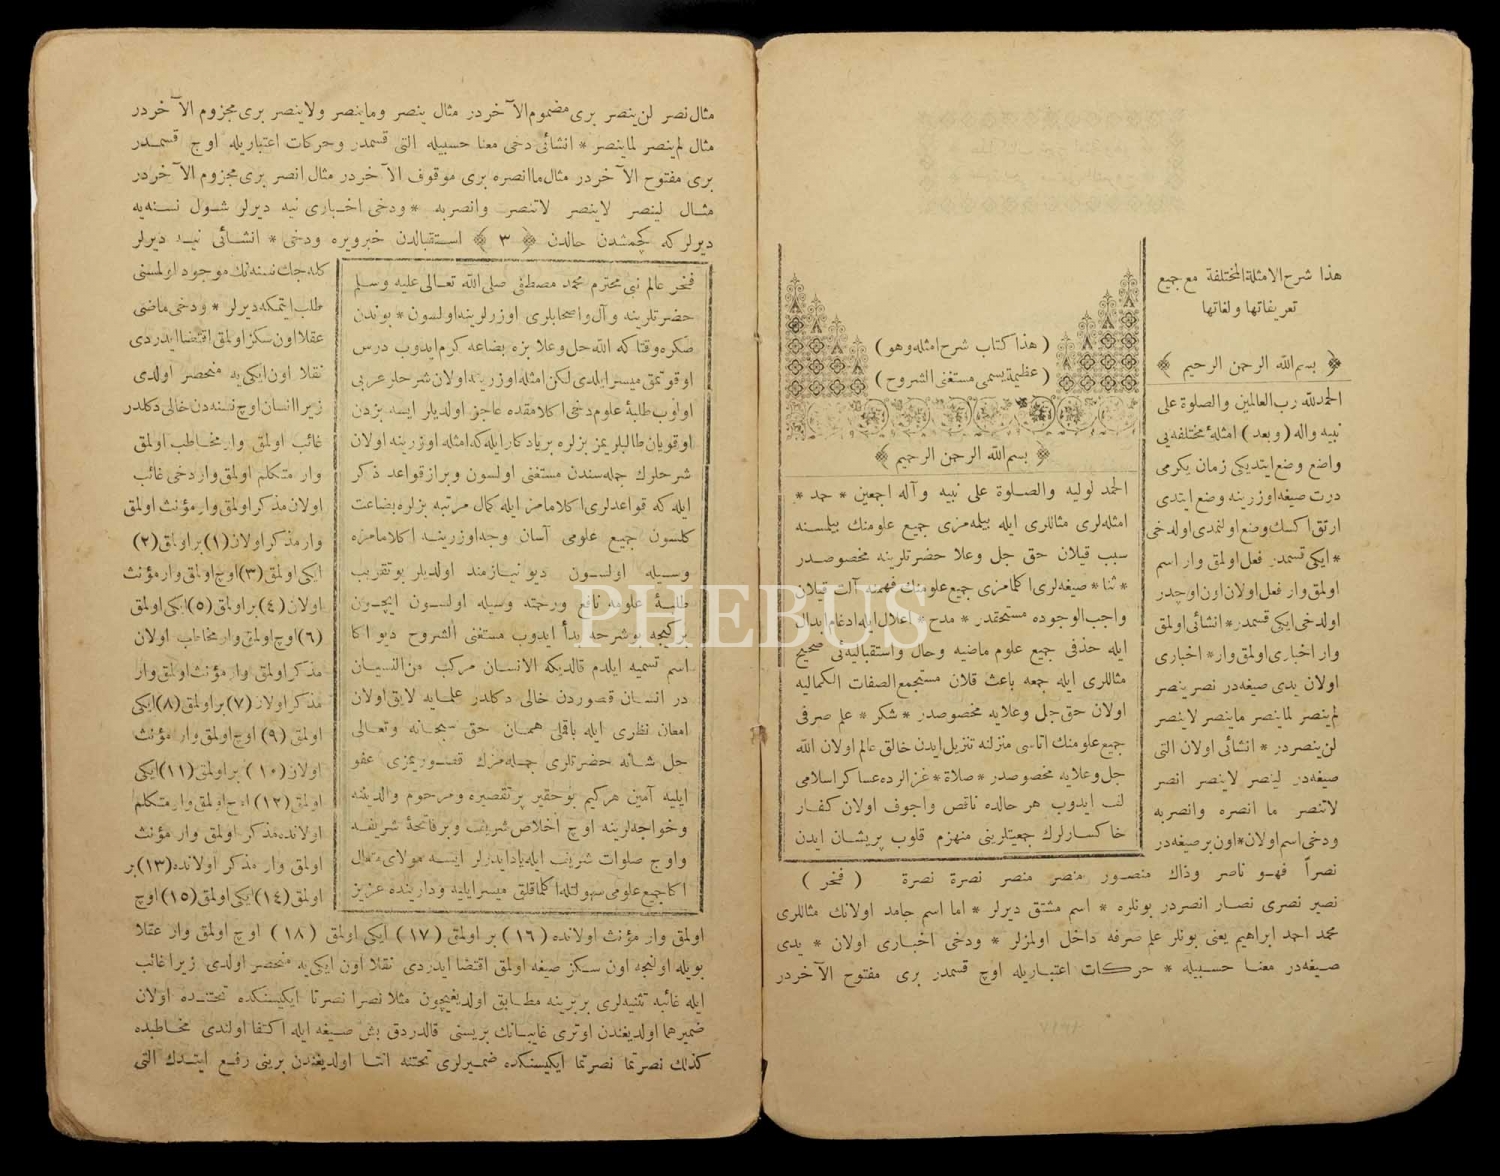 هذا شرح الامثلة المختلفة مع جميع
تعريفاتها ولغاتها
﴿ بسم الله الرحمن الرحيم ﴾
الحمدلله رب العالمين والصلوة على
نبيه واله (وبعد) امثلۀ مختلفه يى
واضع وضع ايتديكى زمان يكرمى
درت صيغه اوزرينه وضع ايتدى
ارتق اكسك وضع اولنمدى اولدخى
* ايكى قسمدر فعل اولمق وار اسم
اولمق وار فعل اولان اون اوچدر
اولدخى ايكى قسمدر * انشائى اولمق
وار اخبارى اولمق وار * اخبارى
اولان يدى صيغه در نصر ينصر
لم ينصر لما ينصر ماينصر لاينصر
لن ينصر در * انشائى اولان التى
صيغه در لينصر لاينصر انصر
لاتنصر ما انصره وانصربه
ودخى اسم اولان * اون بر صيغه در
نصراً فهو ناصر وذاك منصور منصر منصر نصرة نصرة (فخر)
نصير نصرى نصار انصر در بونلره * اسم مشتق ديرلر * اما اسم جامد اولانك مثاللرى
محمد احمد ابراهيم يعنى بونلر علم صرفه داخل اولمزلر * ودخى اخبارى اولان * يدى
صيغه در معنا حسبيله * حركات اعتباريله اوچ قسمدر برى مفتوح الآخردر
(هذا كتاب شرح امثله وهو)
(عظيمة يسمى مستغنى الشروح)
﴿ بسم الله الرحمن الرحيم ﴾
الحمد لوليه والصلوة على نبيه وآله اجمعين * حمد *
امثله لرى مثاللرى ايله بيلمه مزى جميع علومنك بيلمسنه
سبب قيلان حق جل وعلا حضرتلرينه مخصوصدر
* ثنا * صيغه لرى اكلامزى جميع علومنك فهمنه آلت قيلان
واجب الوجوده مستحقدر * مدح * اعلال ايله ادغام ابدال
ايله حذفى جميع علوم ماضيه وحال واستقباليه نى صحيح
مثاللرى ايله جمعه باعث قلان مستجمع الصفات الكماليه
اولان حق جل وعلايه مخصوصدر * شكر * علم صرفى
جميع علومنك اتاسى منزلنه تنزيل ايدن خالق عالم اولان الله
جل وعلايه مخصوصدر * صلاة * غزالرده عساكر اسلامى
لف ايدوب هر حالده ناقص واجوف اولان كفار
خاكسارلرك جمعيتلرينى منهزم قلوب پريشان ايدن
مثال نصر لن ينصر برى مضموم الآخردر مثال ينصر وماينصر ولاينصر برى مجزوم الآخردر
مثال لم ينصر لماينصر * انشائى دخى معنا حسبيله التى قسمدر وحركات اعتباريله اوچ قسمدر
برى مفتوح الآخردر مثال ماانصره برى موقوف الآخردر مثال انصر برى مجزوم الآخردر
مثال لينصر لاينصر لاتنصر وانصربه * ودخى اخبارى نيه ديرلر شول نسنه يه
ديرلركه كچمشدن حالدن ﴿ ٣ ﴾ استقبالدن خبرويره ودخى * انشائى نيه ديرلر
فخر عالم نبى محترم محمد مصطفى صلى الله تعالى عليه وسلم
حضرتلرينه وآل واصحابلرى اوزرلرينه اولسون * بوندن
صكره وقتاكه الله جل وعلا بزه بضاعه كرم ايدوب درس
اوقوتمق ميسر ايلدى لكن امثله اوزرينه اولان شرحلر عربى
اولوب طلبۀ علوم دخى اكلامقده عاجز اولديلر ايسه بزدن
اوقويان طالبلريمز بزلره بر يادكار ايله كه امثله اوزرينه اولان
شرحلرك جمله سندن مستغنى اولسون وبراز قواعد ذكر
ايله كه قواعدلرى اكلامامز ايله كمال مرتبه بزلره بضاعت
كلسون جميع علومى آسان وجه اوزرينه اكلامامزه
وسيله اولسون ديو نيازمند اولديلر بوتقريب
طلبۀ علومه نافع ورحمته وسيله اولسون ايچون
بركيجه بوشرحه بدأ ايدوب مستغنى الشروح ديو اكا
اسم تسميه ايلدم قالديكه الانسان مركب من النسيان
در انسان قصوردن خالى دكلدر علمايه لايق اولان
امعان نظرى ايله باقملى همان حق سبحانه وتعالى
جل شانه حضرتلرى جمله مزك قصوريمزى عفو
ايليه آمين هركيم بوحقير پرتقصيره ومرحوم والدينه
وخواجه لرينه اوچ اخلاص شريف وبر فاتحۀ شريفه
واوچ صلوات شريف ايله ياد ايدرلر ايسه مولاى متعال
اكا جميع علومى سهولتله اكلامقلق ميسر ايليه ودارينده عزيز
كله جك نسنه نك موجود اولمسنى
طلب ايتمكه ديرلر * ودخى ماضى
عقلا اون سكز اولمق اقتضا ايدردى
نقلا اون ايكى يه منحصر اولدى
زيرا انسان اوچ نسنه دن خالى دكلدر
غائب اولمق وار مخاطب اولمق
وار متكلم اولمق وار دخى غائب
اولان مذكر اولمق وار مؤنث اولمق
وار مذكر اولان (١) بر اولمق (٢)
ايكى اولمق (٣) اوچ اولمق وار مؤنث
اولان (٤) بر اولمق (٥) ايكى اولمق
(٦) اوچ اولمق وار مخاطب اولان
مذكر اولمق وار مؤنث اولمق وار
مذكر اولان (٧) بر اولمق (٨) ايكى
اولمق (٩) اوچ اولمق وار مؤنث
اولان (١٠) بر اولمق (١١) ايكى
اولمق (١٢) اوچ اولمق وار متكلم
اولانده مذكر اولمق وار مؤنث
اولمق وار مذكر اولانده (١٣) بر
اولمق (١٤) ايكى اولمق (١٥) اوچ
اولمق وار مؤنث اولانده (١٦) بر اولمق (١٧) ايكى اولمق (١٨) اوچ اولمق وار عقلا
بويله اولنجه اون سكز صيغه اولمق اقتضا ايدردى نقلا اون ايكى يه منحصر اولدى زيرا غائب
ايله غائبه تثنيه لرى بربرينه مطابق اولديغيچون مثلا نصرا نصرتا ايكيسنكده تحتنده اولان
ضمير هما اولديغندن اوترى غايبانك بريسنى قالدردق بش صيغه ايله اكتفا اولندى مخاطبده
كذلك نصرتما نصرتما ايكيسنكده ضميرلرى تحتنه انتما اولديغندن برينى رفع ايتدك التى
PHEBUS